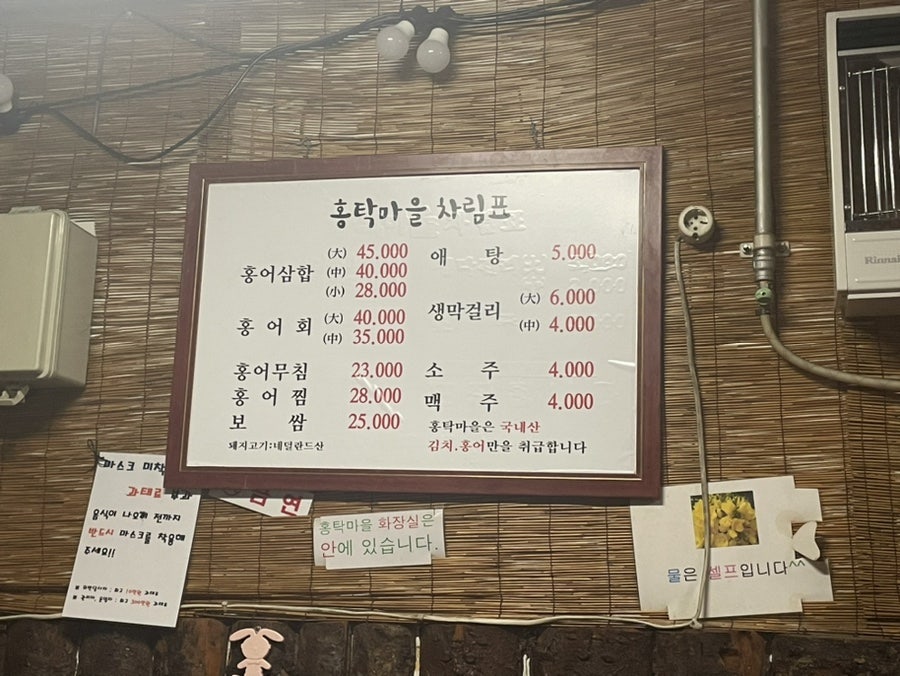 홍탁마을 차림표
홍어삼합 (大) 45.000
(中) 40.000
(小) 28.000
홍어회 (大) 40.000
(中) 35.000
홍어무침 23.000
홍어찜 28.000
보쌈 25.000
돼지고기:네덜란드산
애탕 5.000
생막걸리 (大) 6.000
(中) 4.000
소주 4.000
맥주 4.000
홍탁마을은 국내산
김치.홍어만을 취급합니다
Rinnai
마스크 미착
과태료
음식이 나오기 전까지
반드시 마스크를 착용해
주세요!!
금연
홍탁마을 화장실은
안에 있습니다.
물은 셀프입니다^^